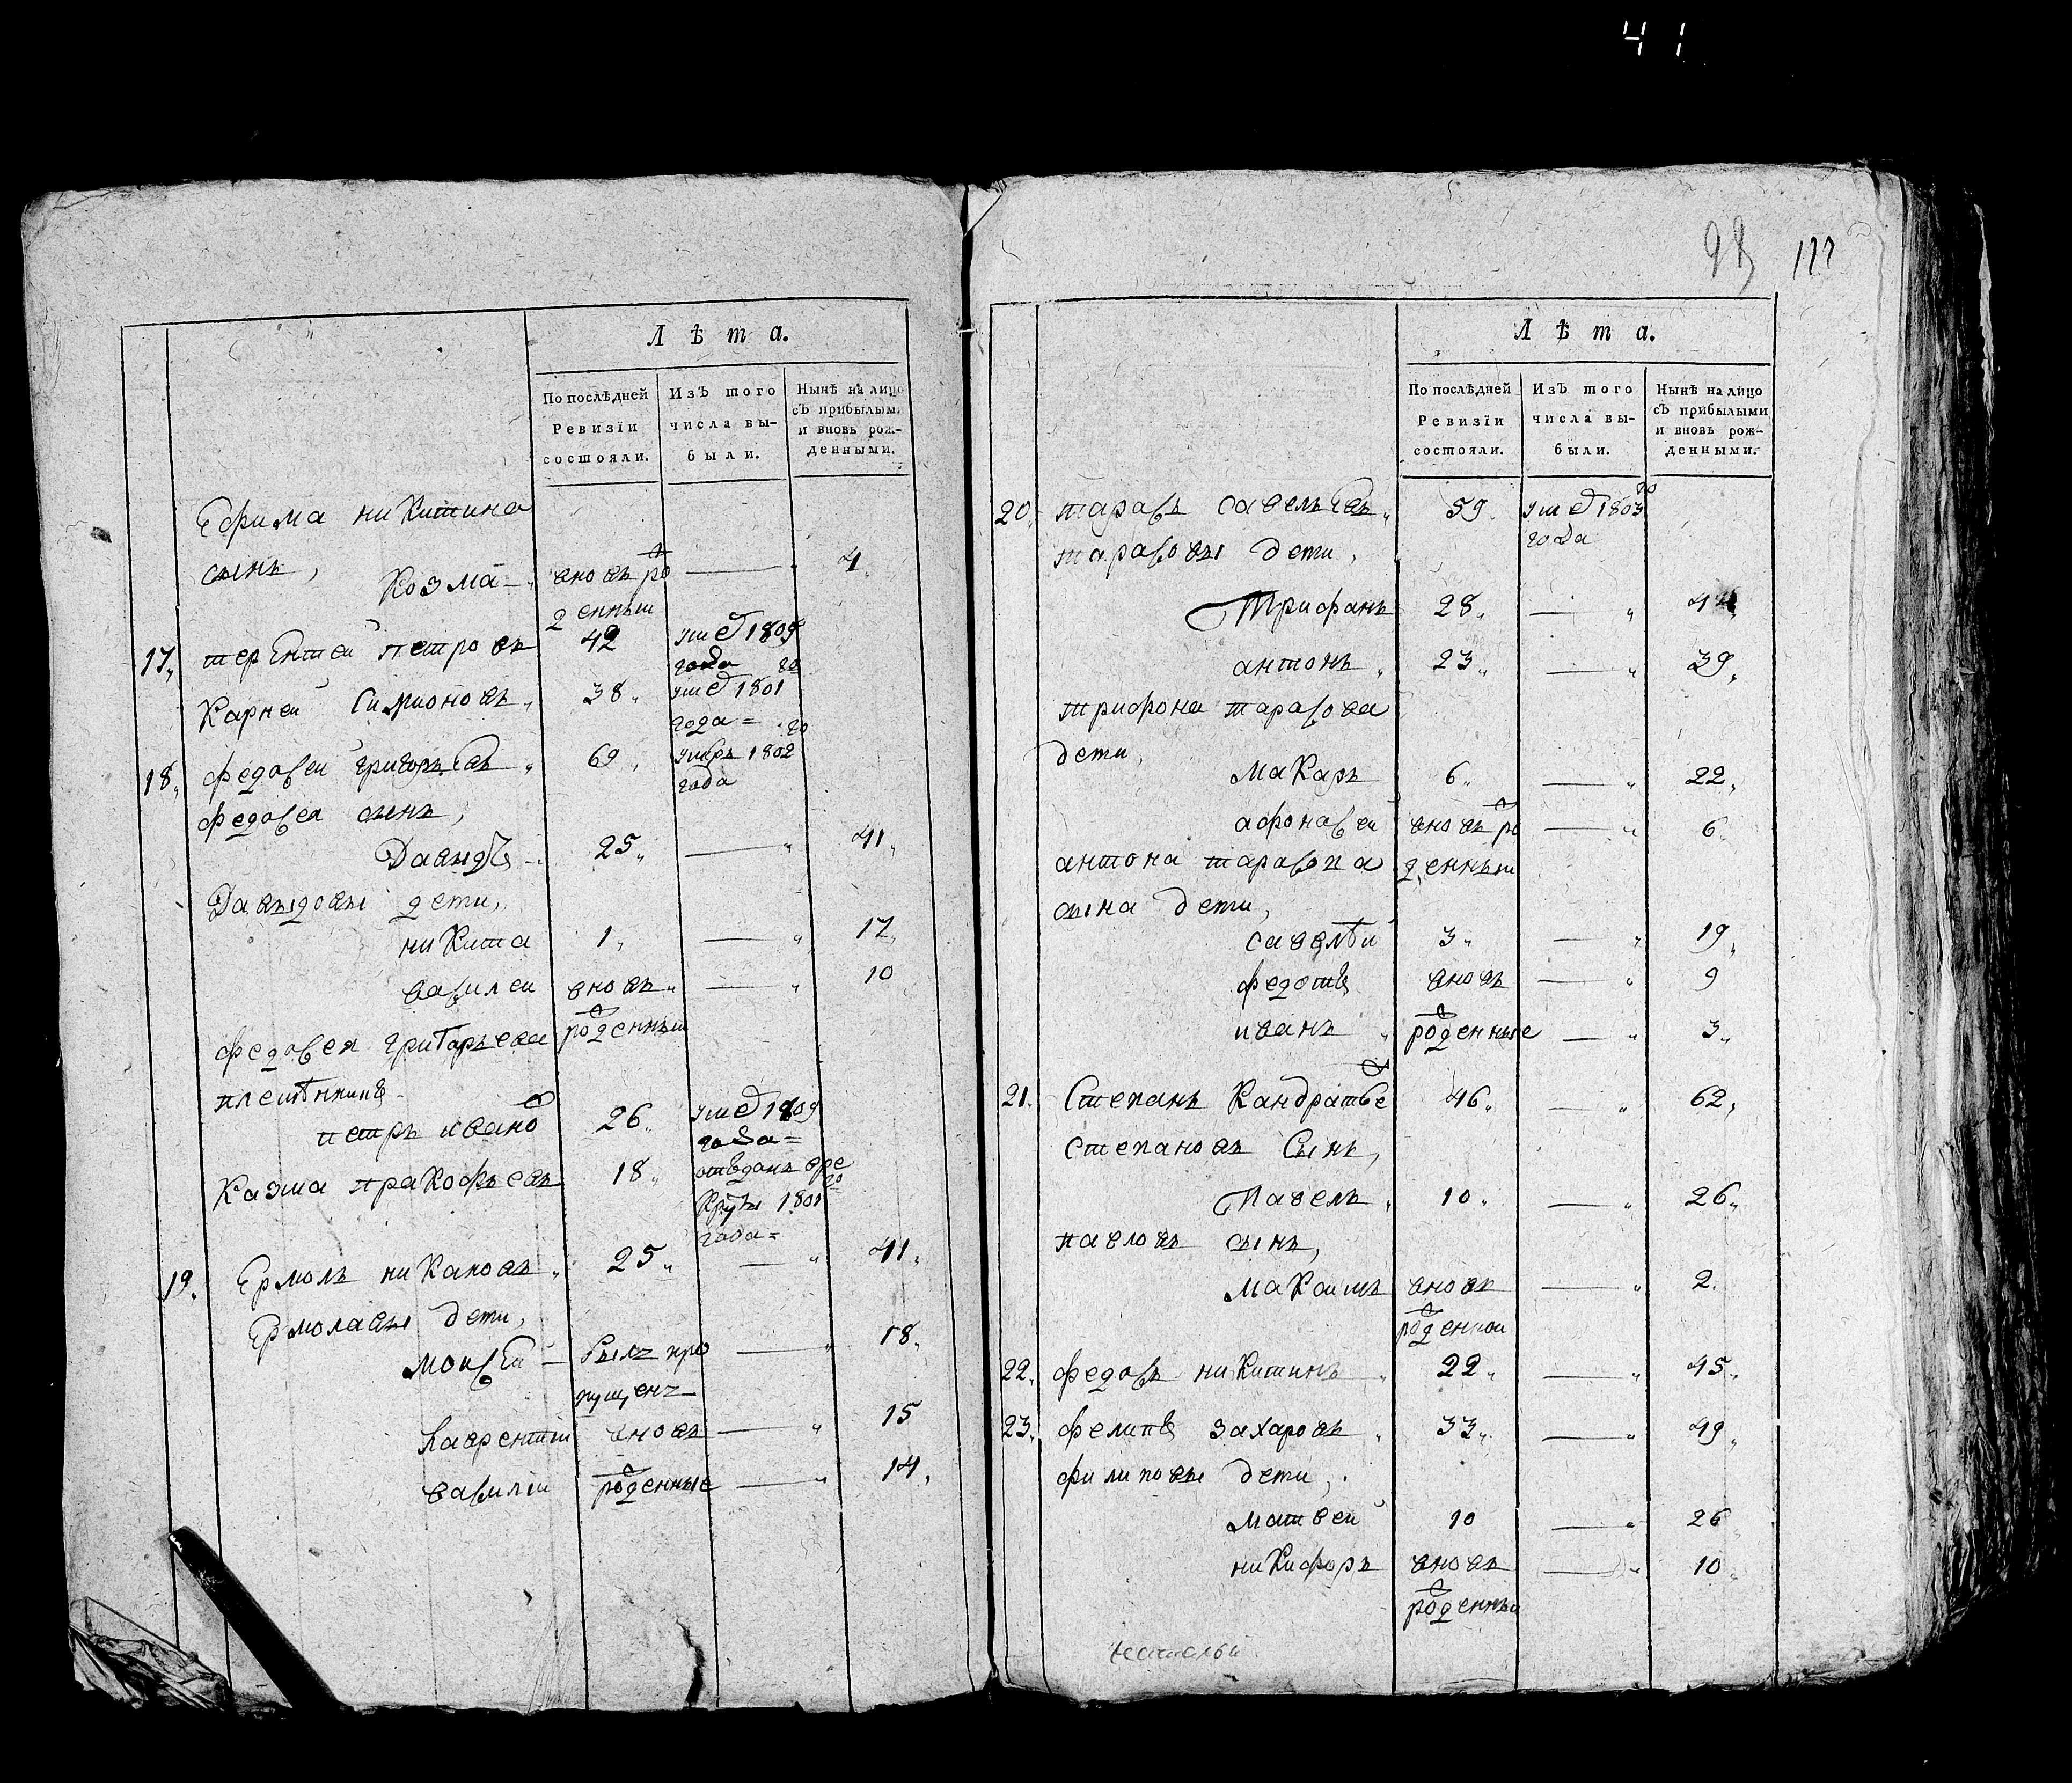 41
Лѣта.
По послѣдней Ревизіи состояли.
Изъ того числа выбыли.
Нынѣ на лицо съ прибылыми и вновь рожденными.
Ефима никитина
сынъ,
Козма вновь ро 4
жденныи
17. терентеи петровъ 42 умеѣ 1809
года
карнеи Симионовъ 38 умеѣ 1801го
года
18. федосеи григорьевъ 69 умеръ 1802го
года
федосея сынъ,
Давыдъ 25 41
Давыдовы дети,
никита 1 17
василеи вновь 10
федосея григорьева роденныи
племѣнникъ
петръ ивано 26 умеѣ 1809
года
Казма пракофьевъ 18 отъданъ вре
круты 1801го
года
19. Ермолъ никановъ 25 41
Ермолавы дети,
моисей былъ про 18
пущенъ
лаврентии вновь 15
василии роденные 14
98 117
Лѣта.
По послѣдней Ревизіи состояли.
Изъ того числа выбыли.
Нынѣ на лицо съ прибылыми и вновь рожденными.
20. тарасъ савельевъ 59 умеѣ 1803го
года
тарасовы дети,
Трифанъ 28 44
антонъ 23 39
трифона тарасова
дети,
макаръ 6 22
афонасеи вновь ро 6
антона тарасова денныи
сына дети,
савелѣй 3 19
федотъ вновь 9
иванъ роденные 3
21. Степанъ Кандратье 46 62
степановъ Сынъ,
Павелъ 10 26
павловъ сынъ,
макаимъ вновь 2
роденнои
22. федосъ никитинъ 22 45
23. фелипъ захаровъ 33 49
филиповы дети,
матвеи 10 26
никифоръ вновь 10
роденныи